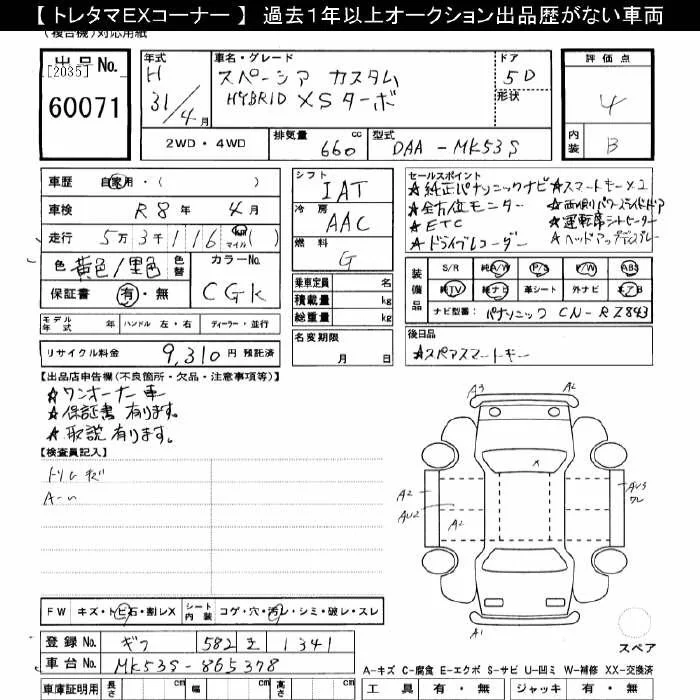 【 トレタマEXコーナー 】 過去1年以上オークション出品歴がない車両
(複合機)対応用紙
出品 No. [2035]
60071
年式 H 31/4月
車名・グレード スペーシア カスタム HYBRID XSターボ
ドア 5D
形状
評価点 4
内装 B
2WD・4WD 排気量 660 cc 型式 DAA-MK53S
車歴 自家用・( )
車検 R8年 4月
走行 5万3千116 km マイル ( )
色 黄色/黒色 色替 カラーNo. CGK
保証書 有・無
モデル年式 年 ハンドル 左・右 ディーラー・並行
リサイクル料金 9,310円 預託済
シフト IAT
冷房 AAC
燃料 G
乗車定員 名
積載量 kg
総重量 kg
名変期限 月 日
セールスポイント
★純正パナソニックナビ ★スマートキー×2
★全方位モニター ★両側パワースライドドア
★ETC ★運転席シートヒーター
★ドライブレコーダー ★ヘッドアップディスプレー
装備品 S/R 純A/W P/S P/W ABS
純TV 純ナビ 革シート 外ナビ エアB
ナビ型番: パナソニック CN-RZ843
後日品
★スペアスマートキー
【出品店申告欄(不良箇所・欠品・注意事項等)】
★ワンオーナー車
★保証書 有ります。
★取説 有ります。
【検査員記入】
トリムキズ
A-〜
A3 A2
A2 AU2 A2
AU3 ワレ
A1
FW キズ・トビ石・割レX シート内装 コゲ・穴・汚レ・シミ・破レ・スレ
スペア
登録 No. ギフ 582 1341
車台 No. MK53S-865378
A-キズ C-腐食 E-エクボ S-サビ U-凹ミ W-補修 XX-交換済
車庫証明用 長さ cm 幅 cm 高さ cm
工具 有・無 ジャッキ 有・無